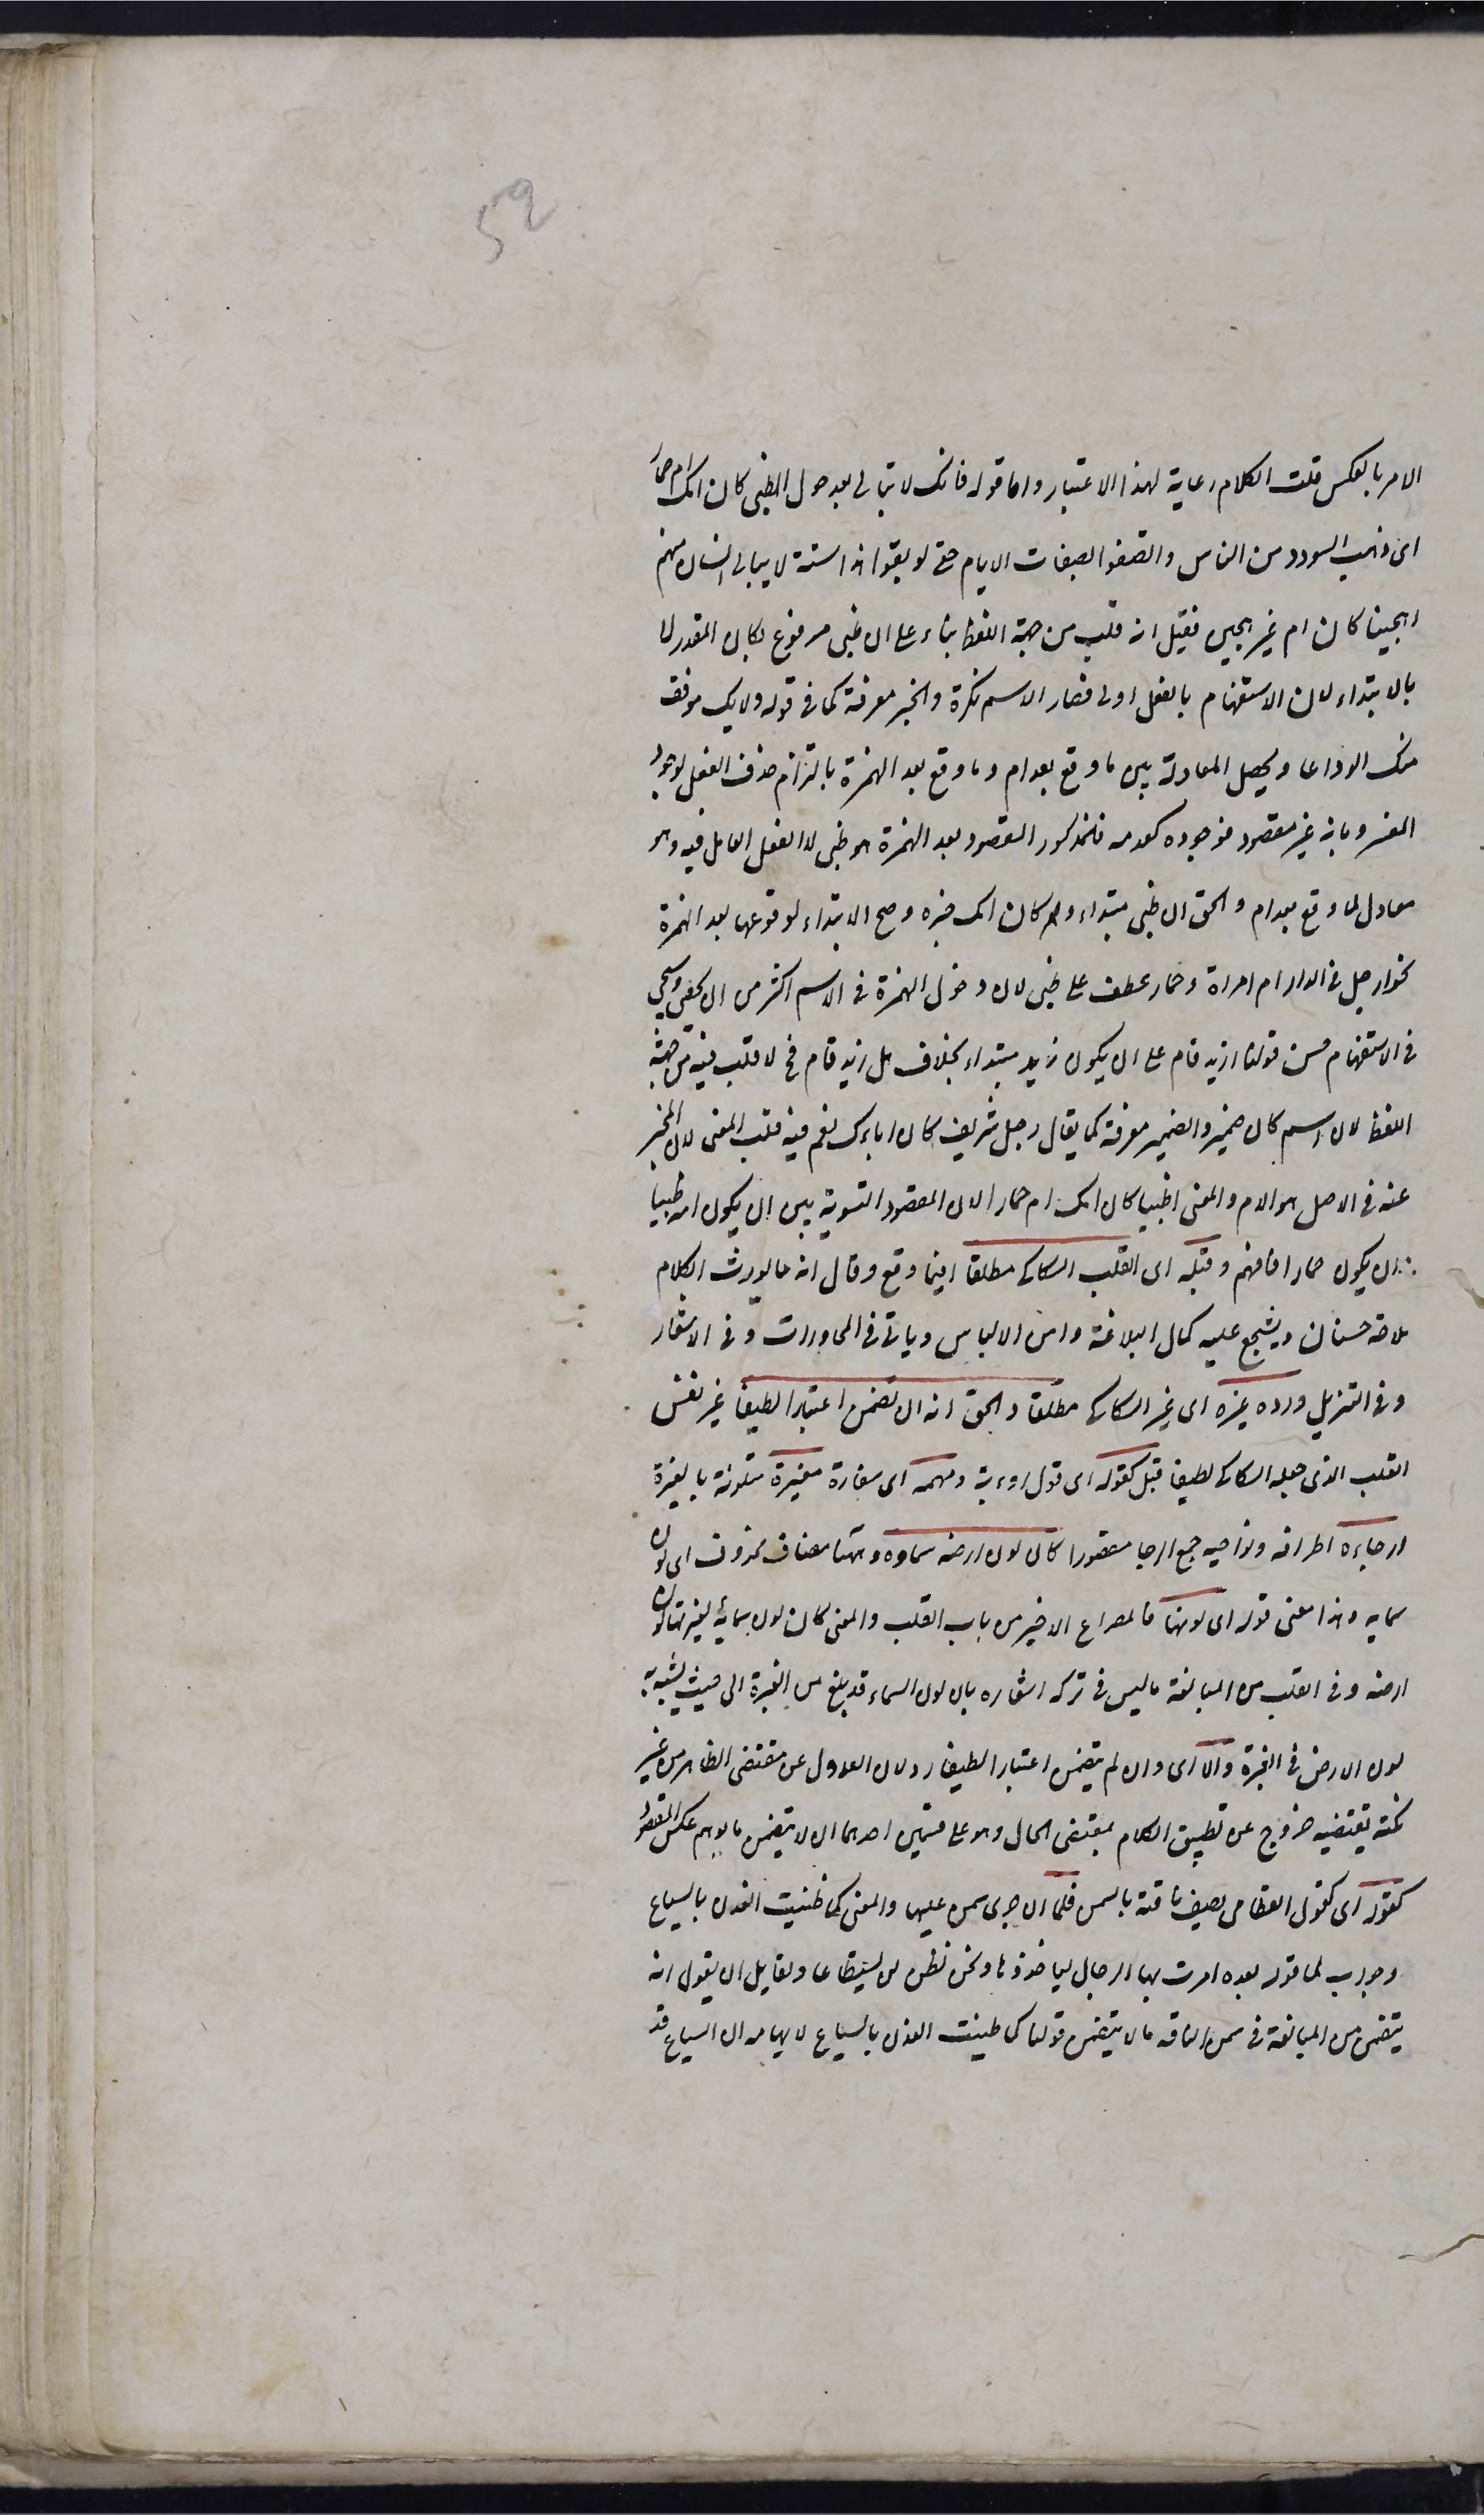 59
الامر بالعكس قلت الكلام رعاية لهذا الاعتبار واما قوله فانك لا تبالى بعد حول اظبى كان امك ام حمار
اى ذهب السودد من الناس واتصفوا بصفات اللئام حتى لو بقوا هذا سنة لا يبالى انسان منهم
اهجينا كان ام غير هجين فقيل انه قلب من جهة اللفظ بناء على ان ظبى مرفوع بكان المقدر لا
بالابتداء لان الاستفهام بالفعل اولى فصار الاسم نكرة والخبر معرفة كما فى قوله ولا يك موقف
منك الوداعا ويحصل المعادلة بين ما وقع بعد ام وما وقع بعد الهمزة بالتزام حذف الفعل لوجود
المفسر وبانه غير مقصود فوجوده كعدمه فالمذكور المقصود بعد الهمزة هو ظبى لا الفعل العامل فيه وهو
معادل لما وقع بعد ام والحق ان ظبى مبتداء وكان امك خبره وصح الابتداء لوقوعها بعد الهمزة
نحو ارجل فى الدار ام امراة وحمار عطف على ظبى لان دخول الهمزة فى الاسم اكثر من ان يحصى وسيجى
فى الاستفهام حسن قولنا ازيد قام على ان يكون زيد مبتداء بخلاف هل زيد قام فح لا قلب فيه من جهة
اللفظ لان اسم كان ضمير والضمير معرفة كما يقال رجل شريف كان اباك نعم فيه قلب المعنى لان المخبر
عنه فى الاصل هو الام والمعنى اظبيا كان امك ام حمارا لان المقصود التسوية بين ان يكون امه ظبيا
وان يكون حمارا فافهم وقبله اى القلب السكاكى مطلقا اينما وقع وقال انه مما يورث الكلام
ملاحة حسنا وان ويشجع عليه كمال البلاغة وامن الالباس وياتى فى المحاورات وفى الاشعار
وفى التنزيل ورده غيره اى غير السكاكى مطلقا والحق انه ان تضمن اعتبارا لطيفا غير نفس
القلب الذى جعله السكاكى لطيفا قبل كقوله اى قول اروءبة ومهمه اى مفازة مغبرة متلونة بالغبرة
ارجاءه اطرافه ونواحيه جمع الرجا مقصورا كان لون ارضه سماوه وههنا مضاف محذوف اى لون
سمايه وهذا معنى قوله اى لونها فالمصراع الاخير من باب القلب والمعنى كان لون سمايه لغبرتها لون
ارضه وفى القلب من المبالغة ما ليس فى تركه اشعاره بان لون السماء قد بلغ من الغبرة الى حيث يشبه به
لون الارض فى الغبرة والا اى وان لم يتضمن اعتبارا لطيفا رد لان العدول عن مقتضى الظاهر من غير
نكتة تقتضيه خروج عن تطبيق الكلام بمقتضى الحال وهو على قسمين احدهما ان لا يتضمن ما يوهم عكس المقصود
كقوله اى كقول القطامى يصف ناقته بالسمن فلما ان جرى سمن عليها والمعنى كما طينت الفدن بالسياع
وجواب لما قوله بعده امرت بها الرجال لياخذوها ونحن نظن لن يستطاعا ولقايل ان يقول انه
يتضمن من المبالغة فى سمن الناقة ما لا يتضمن قولنا كما طينت الفدن بالسياع لايهامه ان السياع قد